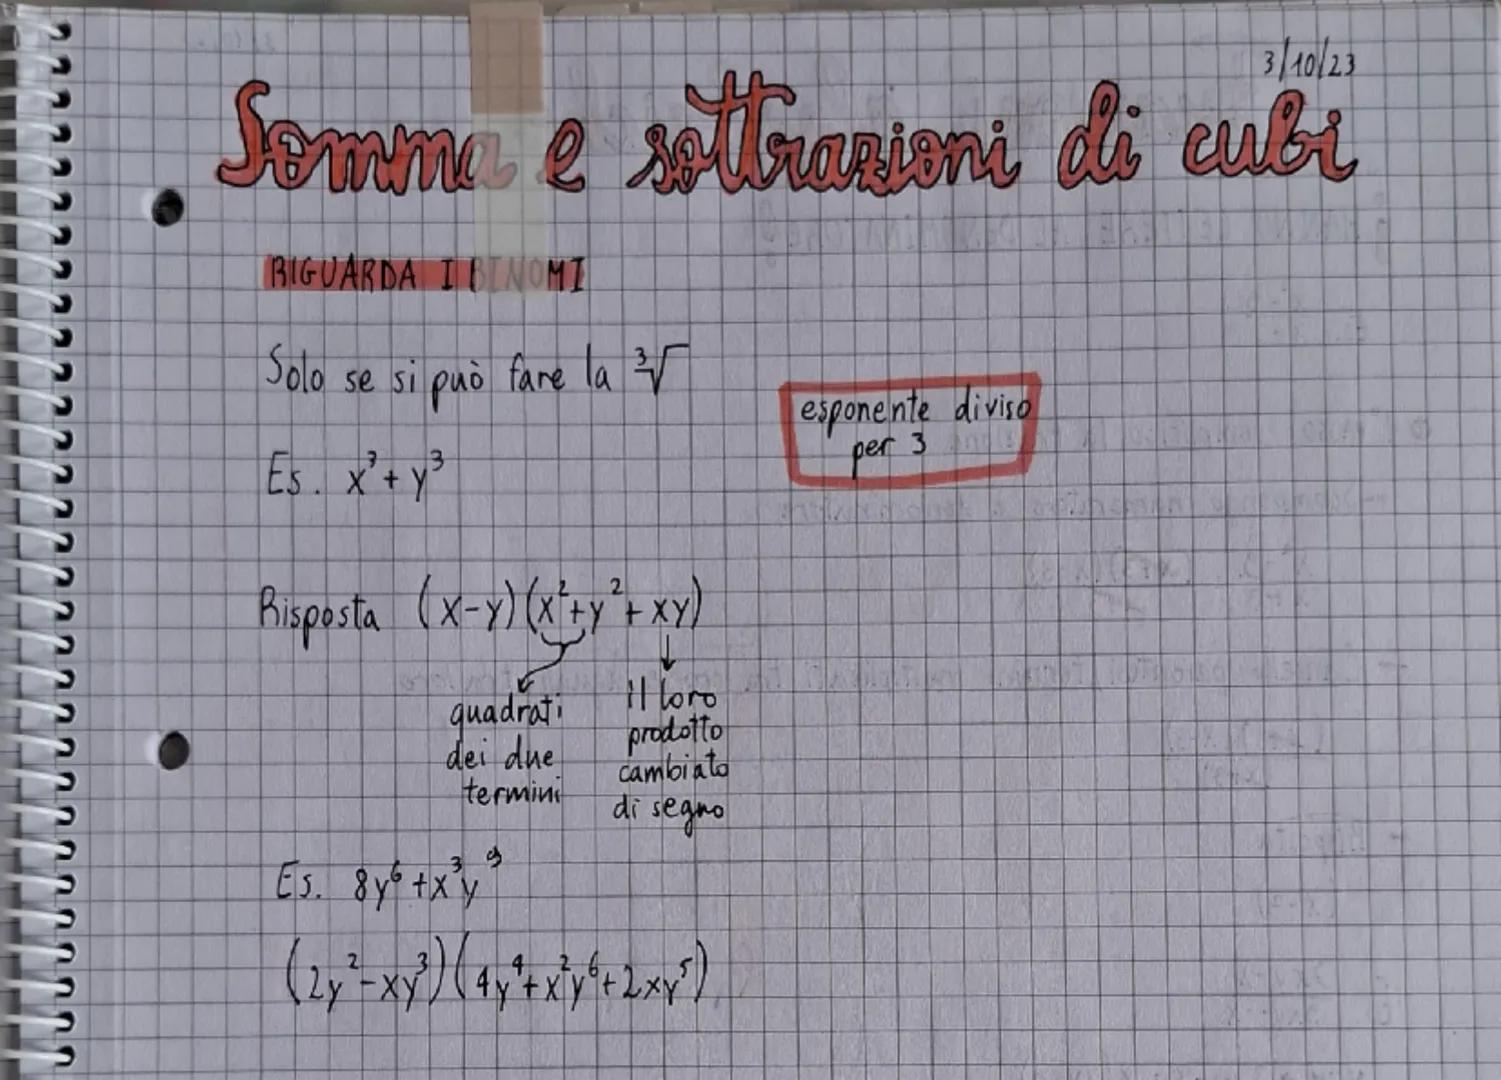 3/10/23
Somma e sottrazioni di cubi
RIGUARDA I BINOMI
Solo se si può fare la ³√
esponente diviso
per 3
Es. x³ + y³
Risposta (x-y)(x²+y²+xy)
quadrati
dei due
termini
il loro
prodotto
cambiato
di segno
Es. 8y⁶+x³y⁹
(2y²-xy³)(4y⁴+x²y⁶+2xy⁵)